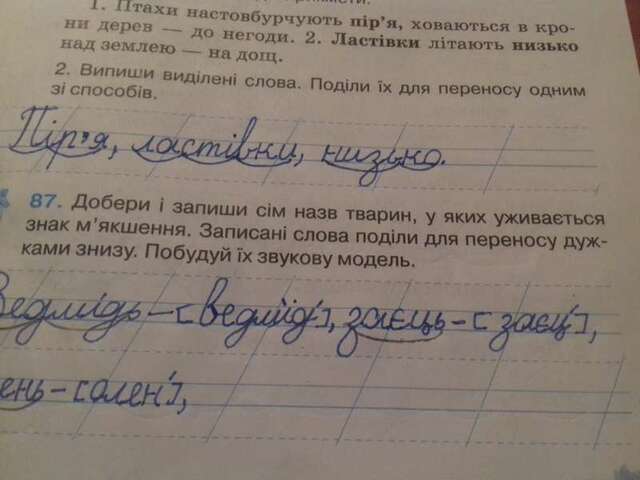 1. Птахи настовбурчують пір'я, ховаються в кро-
ни дерев — до негоди. 2. Ластівки літають низько
над землею — на дощ.
2. Випиши виділені слова. Поділи їх для переносу одним
зі способів.
Пір'я, ластівки, низько.
87. Добери і запиши сім назв тварин, у яких уживається
знак м'якшення. Записані слова поділи для переносу дуж-
ками знизу. Побудуй їх звукову модель.
Ведмідь – [ведмід'], заєць – [заєц'],
ень – [олен'],